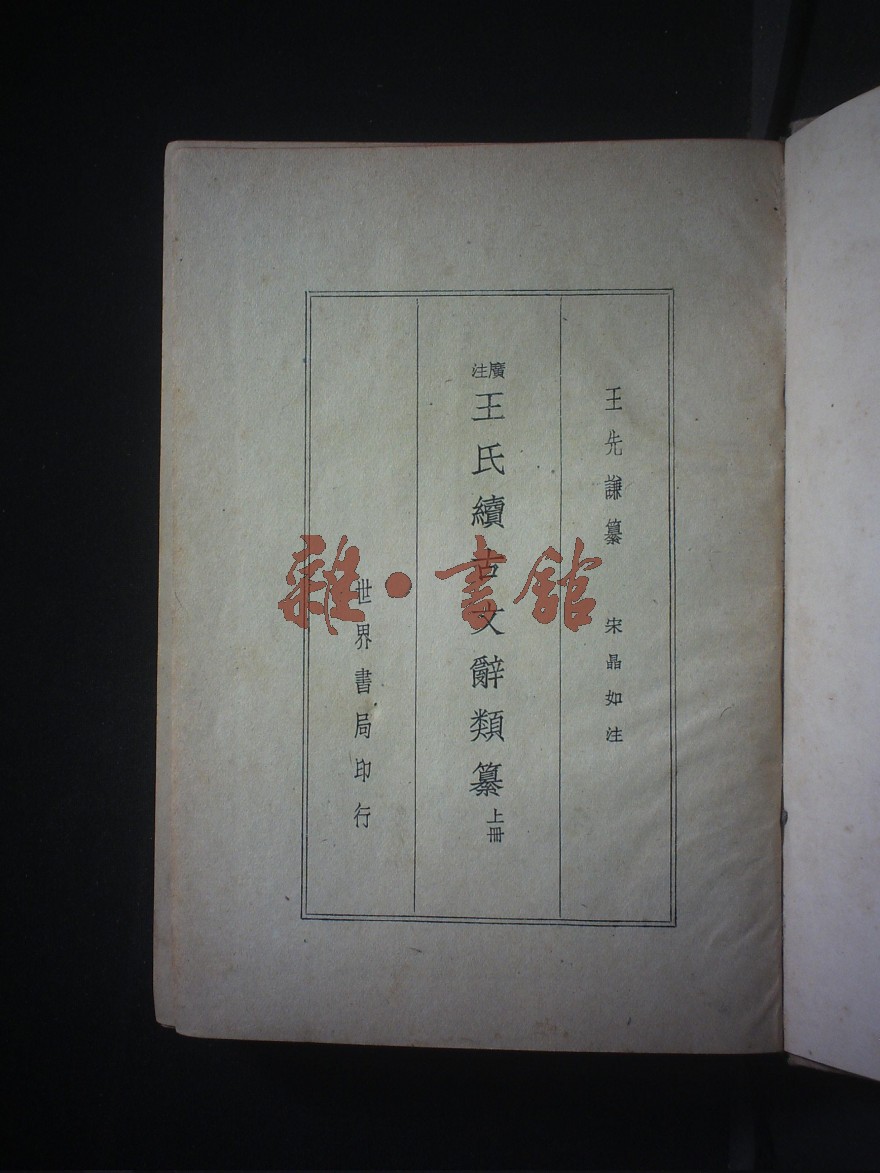 王先謙纂 宋晶如注
廣注 王氏續古文辭類纂 上冊
世界書局印行
雜·書館